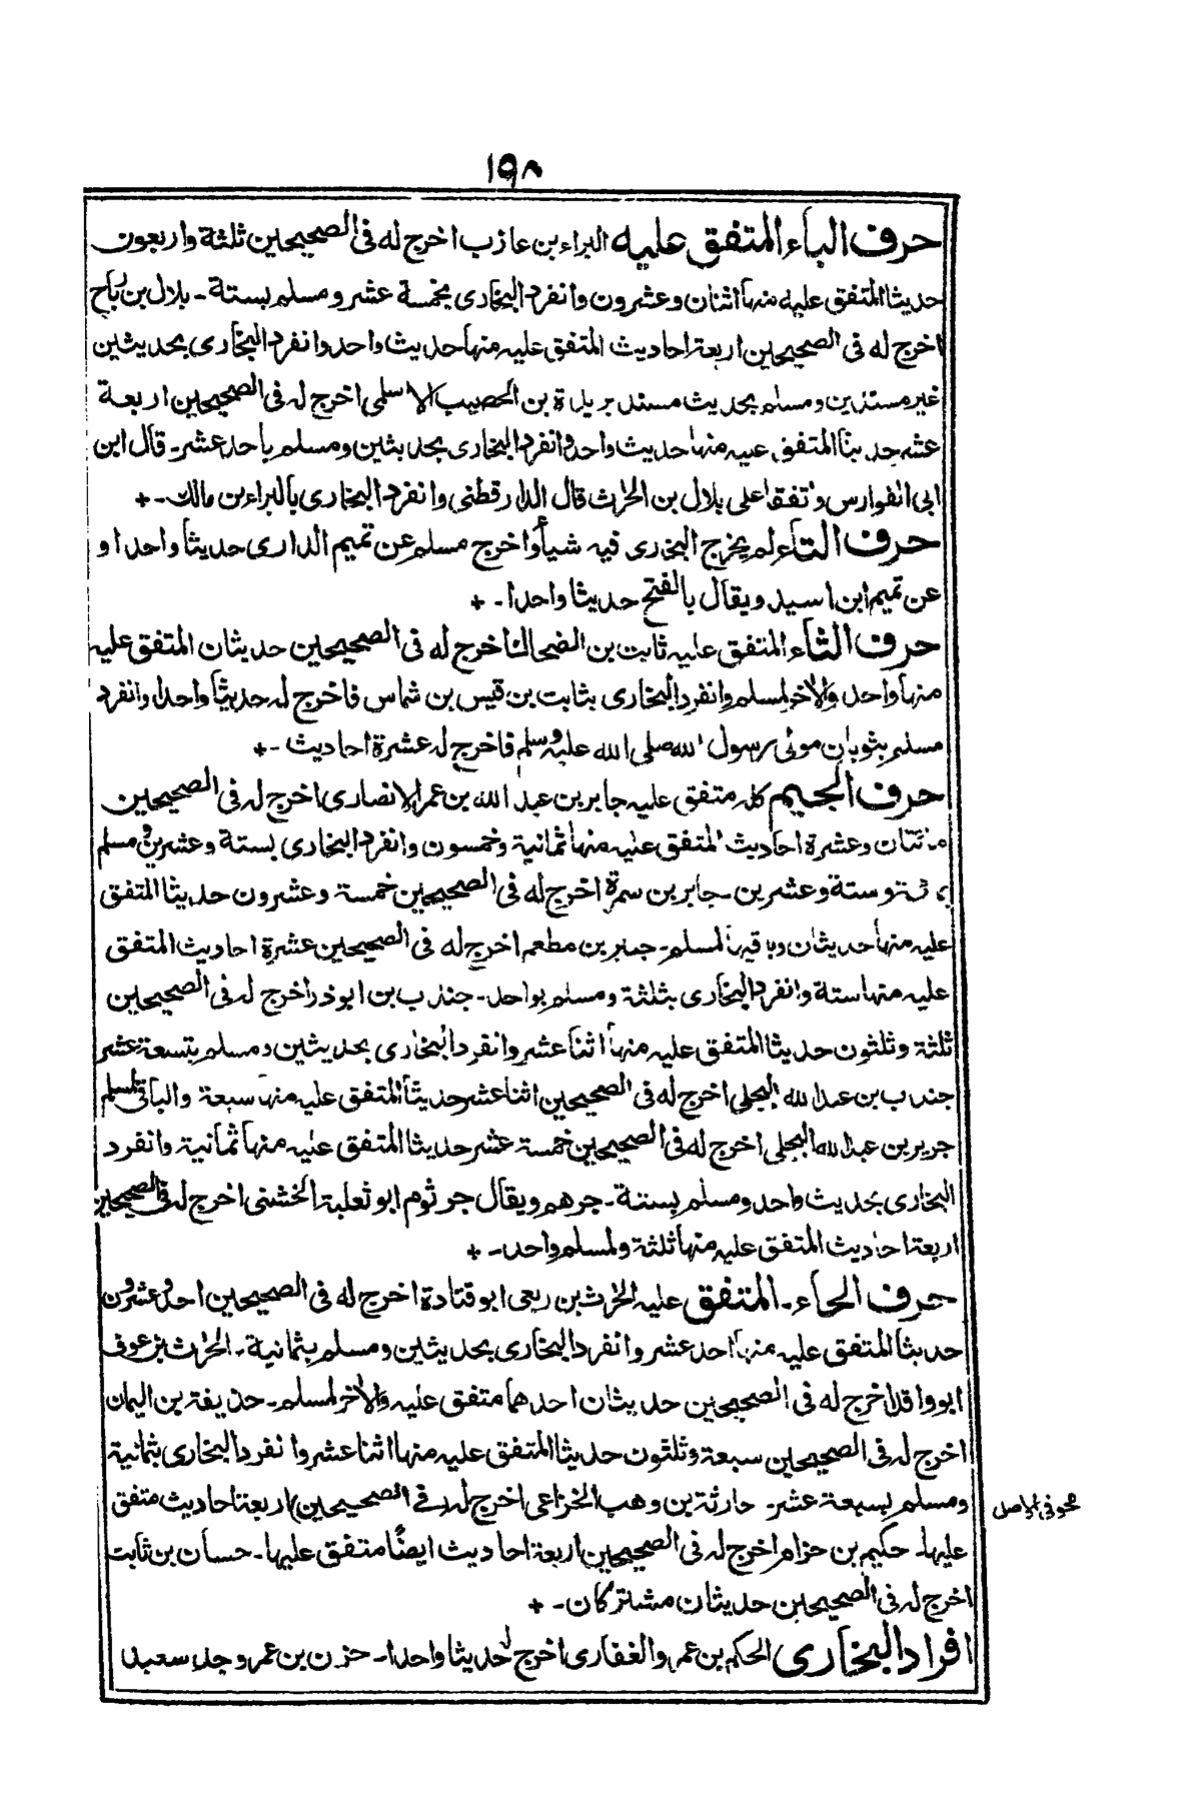 ١٩٨
حرف الباء المتفق عليه البراء بن عازب اخرج له فى الصحيحين ثلثة واربعون
حديثا المتفق عليه منها اثنان وعشرون وانفرد البخارى بخمسة عشر ومسلم بستة - بلال بن رباح
اخرج له فى الصحيحين اربعة احاديث المتفق عليه منها حديث واحد وانفرد البخارى بحديثين
غير مسندين ومسلم بحديث مسند بريدة بن الحصيب الاسلمى اخرج له فى الصحيحين اربعة
عشر حديثا المتفق عليه منها حديث واحد وانفرد البخارى بحديثين ومسلم باحد عشر - قال ابن
ابى الفوارس واتفقا على بلال بن الحارث قال الدارقطنى وانفرد البخارى بالبراء بن مالك - +
حرف التاء لم يخرج البخارى فيه شيأ واخرج مسلم عن تميم الدارى حديثا واحدا و
عن تميم ابن اسيد ويقال بالفتح حديثا واحدا - +
حرف الثاء المتفق عليه ثابت بن الضحاك اخرج له فى الصحيحين حديثان المتفق عليه
منها واحد والاخر لمسلم وانفرد البخارى بثابت بن قيس بن شماس فاخرج له حديثا واحدا وانفرد
مسلم بثوبان مولى رسول الله صلى الله عليه وسلم فاخرج له عشرة احاديث - +
حرف الجيم كله متفق عليه جابر بن عبد الله بن عمر الانصارى اخرج له فى الصحيحين
مائتان وعشرة احاديث المتفق عليه منها ثمانية وخمسون وانفرد البخارى بستة وعشرين ومسلم
وستة وعشرين - جابر بن سمرة اخرج له فى الصحيحين خمسة وعشرون حديثا المتفق
عليه منها حديثان وباقيها لمسلم - جبير بن مطعم اخرج له فى الصحيحين عشرة احاديث المتفق
عليه منها ستة وانفرد البخارى بثلثة ومسلم بواحد - جندب بن ابوذر اخرج له فى الصحيحين
ثلثة وثلثون حديثا المتفق عليه منها اثنا عشر وانفرد البخارى بحديثين ومسلم بتسعة عشر
جندب بن عبد الله البجلى اخرج له فى الصحيحين اثنا عشر حديثا المتفق عليه منها سبعة والباقى لمسلم
جرير بن عبد الله البجلى اخرج له فى الصحيحين خمسة عشر حديثا المتفق عليه منها ثمانية وانفرد
البخارى بحديث واحد ومسلم بستة - جرهم ويقال جرثوم ابو ثعلبة الخشنى اخرج له فى الصحيحين
اربعة احاديث المتفق عليه منها ثلثة ولمسلم واحد - +
حرف الحاء - المتفق عليه الحارث بن ربعى ابو قتادة اخرج له فى الصحيحين احد وعشرون
حديثا المتفق عليه منها احد عشر وانفرد البخارى بحديثين ومسلم بثمانية - الحارث بن عوف
ابو واقد اخرج له فى الصحيحين حديثان احدهما متفق عليه والاخر لمسلم - حذيفة بن اليمان
اخرج له فى الصحيحين سبعة وثلثون حديثا المتفق عليه منها اثنا عشر وانفرد البخارى بثمانية
ومسلم بسبعة عشر - حارثة بن وهب الخزاعى اخرج له (فى الصحيحين) اربعة احاديث متفق
محو فى الاصل
عليها - حكيم بن حزام اخرج له فى الصحيحين اربعة احاديث ايضًا متفق عليها - حسان بن ثابت
اخرج له فى الصحيحين حديثان مشتركان - +
افراد البخارى الحكم بن عمرو الغفارى اخرج له حديثا واحدا - حزن بن عمرو جد سعيد